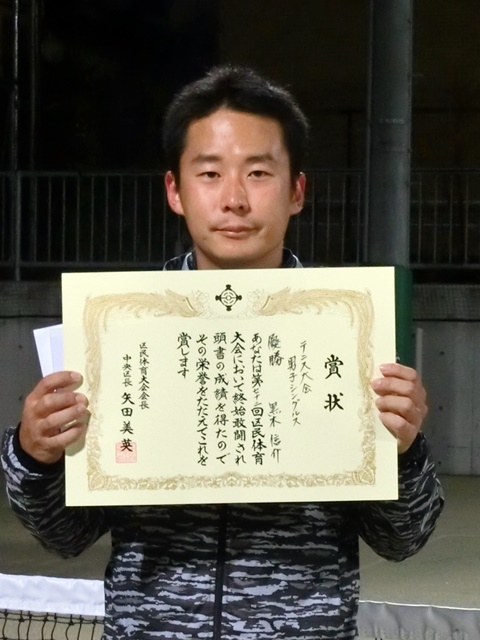 賞状
テニス大会
男子シングルス
優勝 黒木信介
あなたは第
回区民体育
大会において終始敢闘され
頭書の成績を得たので
その栄誉をたたえてこれを
賞します
区民体育大会会長
中央区長 矢田美英